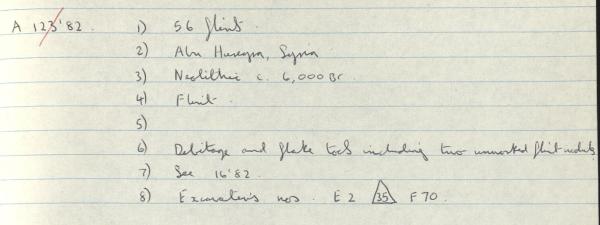 A 123'82. 1) 56 flint.
2) Abu Hureyra, Syria
3) Neolithic c. 6,000 BC.
4) Flint.
5)
6) Debitage and flake tools including two unworked flint nodules
7) See 16'82.
8) Excavation's nos. E2 35 F70.